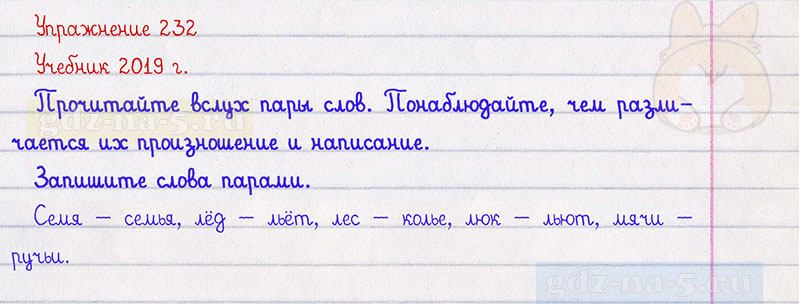 Упражнение 232
Учебник 2019 г.
Прочитайте вслух пары слов. Понаблюдайте, чем разли-
чается их произношение и написание.
gdz-na-5.ru
Запишите слова парами.
Семя – семья, лёд – льёт, лес – колье, люк – льют, мячи –
ручьи.
gdz-na-5.ru